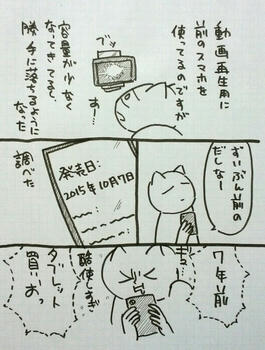 動画再生用に
前のスマホを
使ってるのですが
ブッ
あー…
容量が少なく
なってきてるし
勝手に落ちるように
なった
ずいぶん前の
だしなー
調べた
発売日:
2015年10月7日
7年前
ギュ…
酷使しすぎ
タブレット
買いおっ